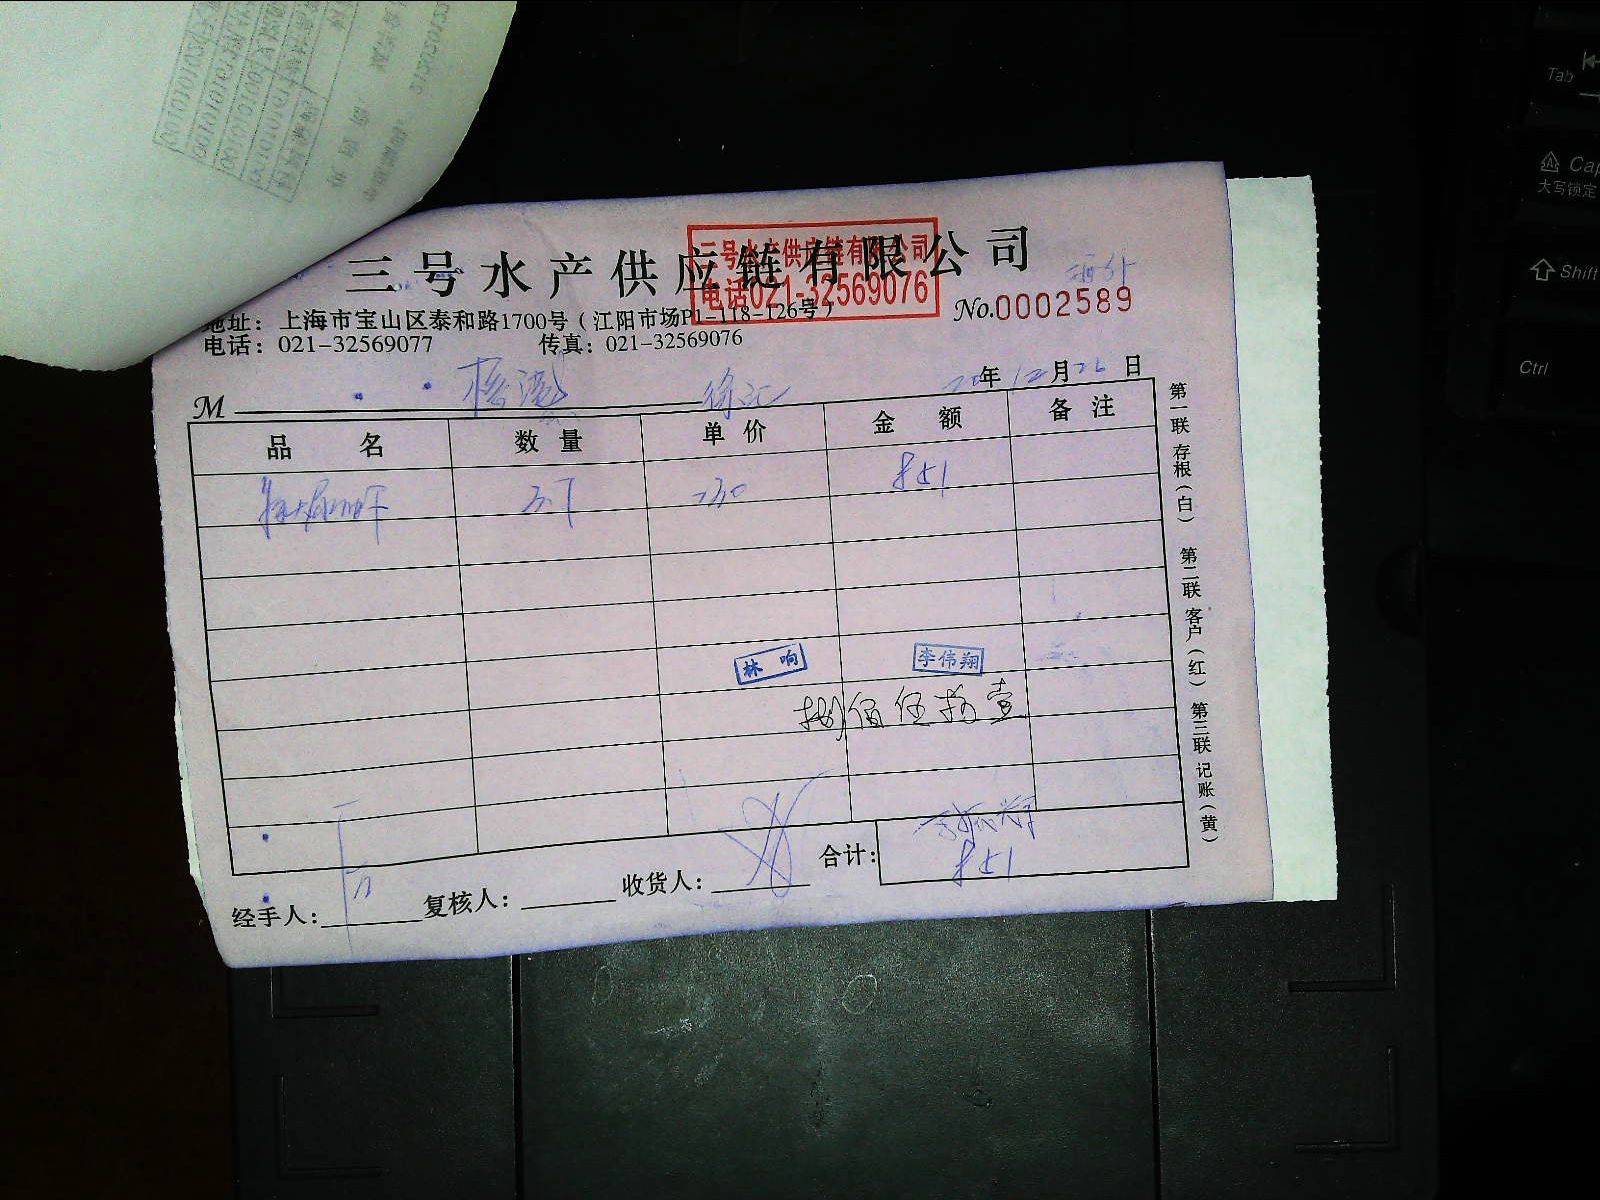 三号水产供应链有限公司
三号水产供应链有限公司
电话021-32569076
地址：上海市宝山区泰和路1700号（江阳市场P1-118-126号）
No.0002589
电话：021-32569077 传真：021-32569076
M 徐汇 20年12月26日
品名 数量 单价 金额 备注
3.7 230 851
林响 李伟翔
捌佰伍拾壹
合计：851
经手人： 复核人： 收货人：
第一联 存根（白） 第二联 客户（红） 第三联 记账（黄）
Tab
Cap
大写锁定
Shift
Ctrl